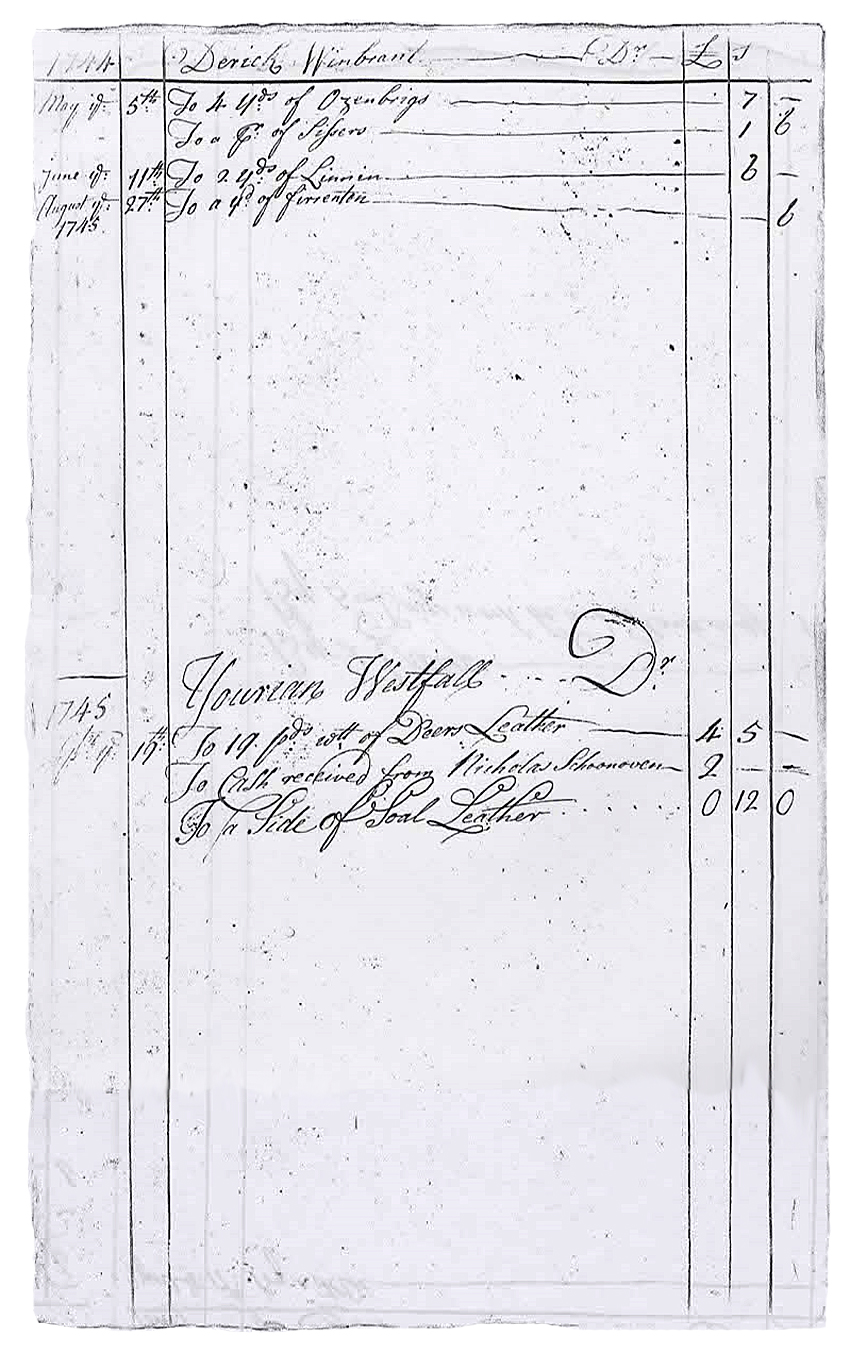 1744 Derick Winbrant Dr £ s
May ye 5th To 4 yds of Ozenbrigs 7 —
To a Pr of Sissers 1 6
June ye 11th To 2 yds of Linnin 6 —
August ye 27th To a yd of 6
1745
Yourian Westfall Dr
1745
ye 19th To 19 pds wtt of Deers Leather 4 5 —
To Cash received from Nicholas Schoonoven 2 — —
To a Side of Soal Leather 0 12 0